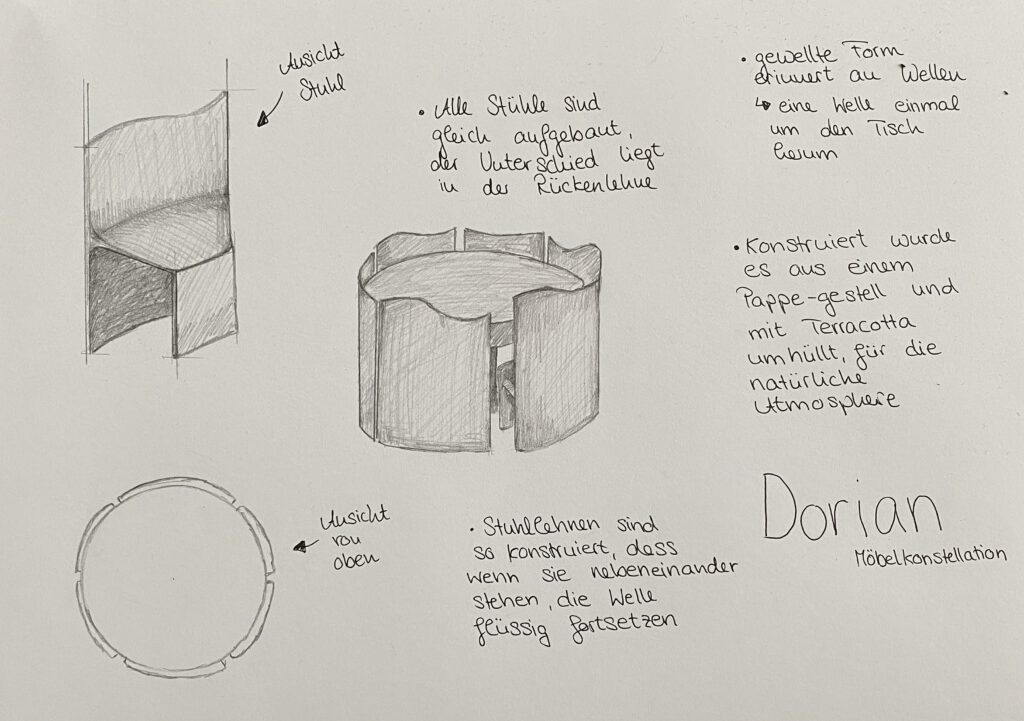 Ansicht
Stuhl
• Alle Stühle sind
gleich aufgebaut,
der Unterschied liegt
in der Rückenlehne
• gewellte Form
erinnert an Wellen
↳ eine Welle einmal
um den Tisch
herum
• Konstruiert wurde
es aus einem
Pappe-gestell und
mit Terracotta
umhüllt, für die
natürliche
Atmosphere
Ansicht
von
oben
• Stuhllehnen sind
so konstruiert, dass
wenn sie nebeneinander
stehen, die Welle
flüssig fortsetzen
Dorian
Möbelkonstellation